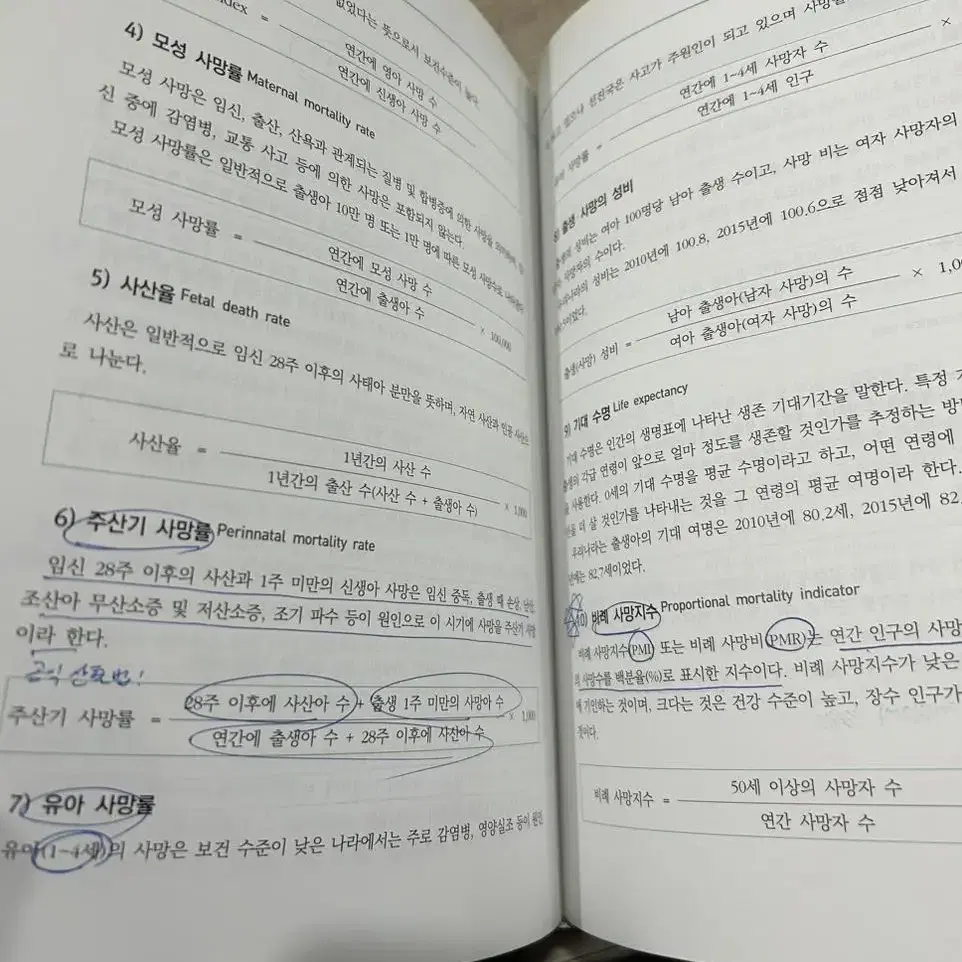 없었다는 뜻으로서 보건수준이 높다
연간에 영아 사망 수
index =
연간에 신생아 사망 수
4) 모성 사망률 Maternal mortality rate
모성 사망은 임신, 출산, 산욕과 관계되는 질병 및 합병증에 의한 사망을
신 중에 감염병, 교통 사고 등에 의한 사망은 포함되지 않는다.
모성 사망률은 일반적으로 출생아 10만 명 또는 1만 명에 따른 모성 사망수로
연간에 모성 사망 수
모성 사망률 = × 100,000
연간에 출생아 수
5) 사산율 Fetal death rate
사산은 일반적으로 임신 28주 이후의 사태아 분만을 뜻하며, 자연 사산과 인공
로 나눈다.
1년간의 사산 수
사산율 = × 1,000
1년간의 출산 수(사산 수 + 출생아 수)
6) 주산기 사망률 Perinnatal mortality rate
임신 28주 이후의 사산과 1주 미만의 신생아 사망은 임신 중독, 출생 때 손상, 난산,
조산아 무산소증 및 저산소증, 조기 파수 등이 원인으로 이 시기에 사망을 주산기 사망
이라 한다.
28주 이후에 사산아 수 + 출생 1주 미만의 사망아 수
주산기 사망률 = × 1,000
연간에 출생아 수 + 28주 이후에 사산아 수
7) 유아 사망률
유아(1~4세)의 사망은 보건 수준이 낮은 나라에서는 주로 감염병, 영양실조 등이 원인
선진국은 사고가 주원인이 되고 있으며 사망률
연간에 1~4세 사망자 수
사망률 = ×
연간에 1~4세 인구
8) 출생 사망의 성비
출생의 성비는 여아 100명당 남아 출생 수이고, 사망 비는 여자 사망자의
사망자의 수이다.
우리나라의 성비는 2010년에 100.8, 2015년에 100.6으로 점점 낮아져서
남아 출생아(남자 사망)의 수
출생(사망) 성비 = × 1,0
여아 출생아(여자 사망)의 수
9) 기대 수명 Life expectancy
기대 수명은 인간의 생명표에 나타난 생존 기대기간을 말한다. 특정
출생의 각급 연령이 앞으로 얼마 정도를 생존할 것인가를 추정하는
을 사용한다. 0세의 기대 수명을 평균 수명이라고 하고, 어떤 연령에
더 살 것인가를 나타내는 것을 그 연령의 평균 여명이라 한다.
우리나라는 출생아의 기대 여명은 2010년에 80.2세, 2015년에 82.
년에는 82.7세이었다.
10) 비례 사망지수 Proportional mortality indicator
비례 사망지수(PMI) 또는 비례 사망비(PMR)는 연간 인구의 사망
의 사망수를 백분율(%)로 표시한 지수이다. 비례 사망지수가 낮은
에 기인하는 것이며, 크다는 것은 건강 수준이 높고, 장수 인구가
뜻이다.
50세 이상의 사망자 수
비례 사망지수 =
연간 사망자 수